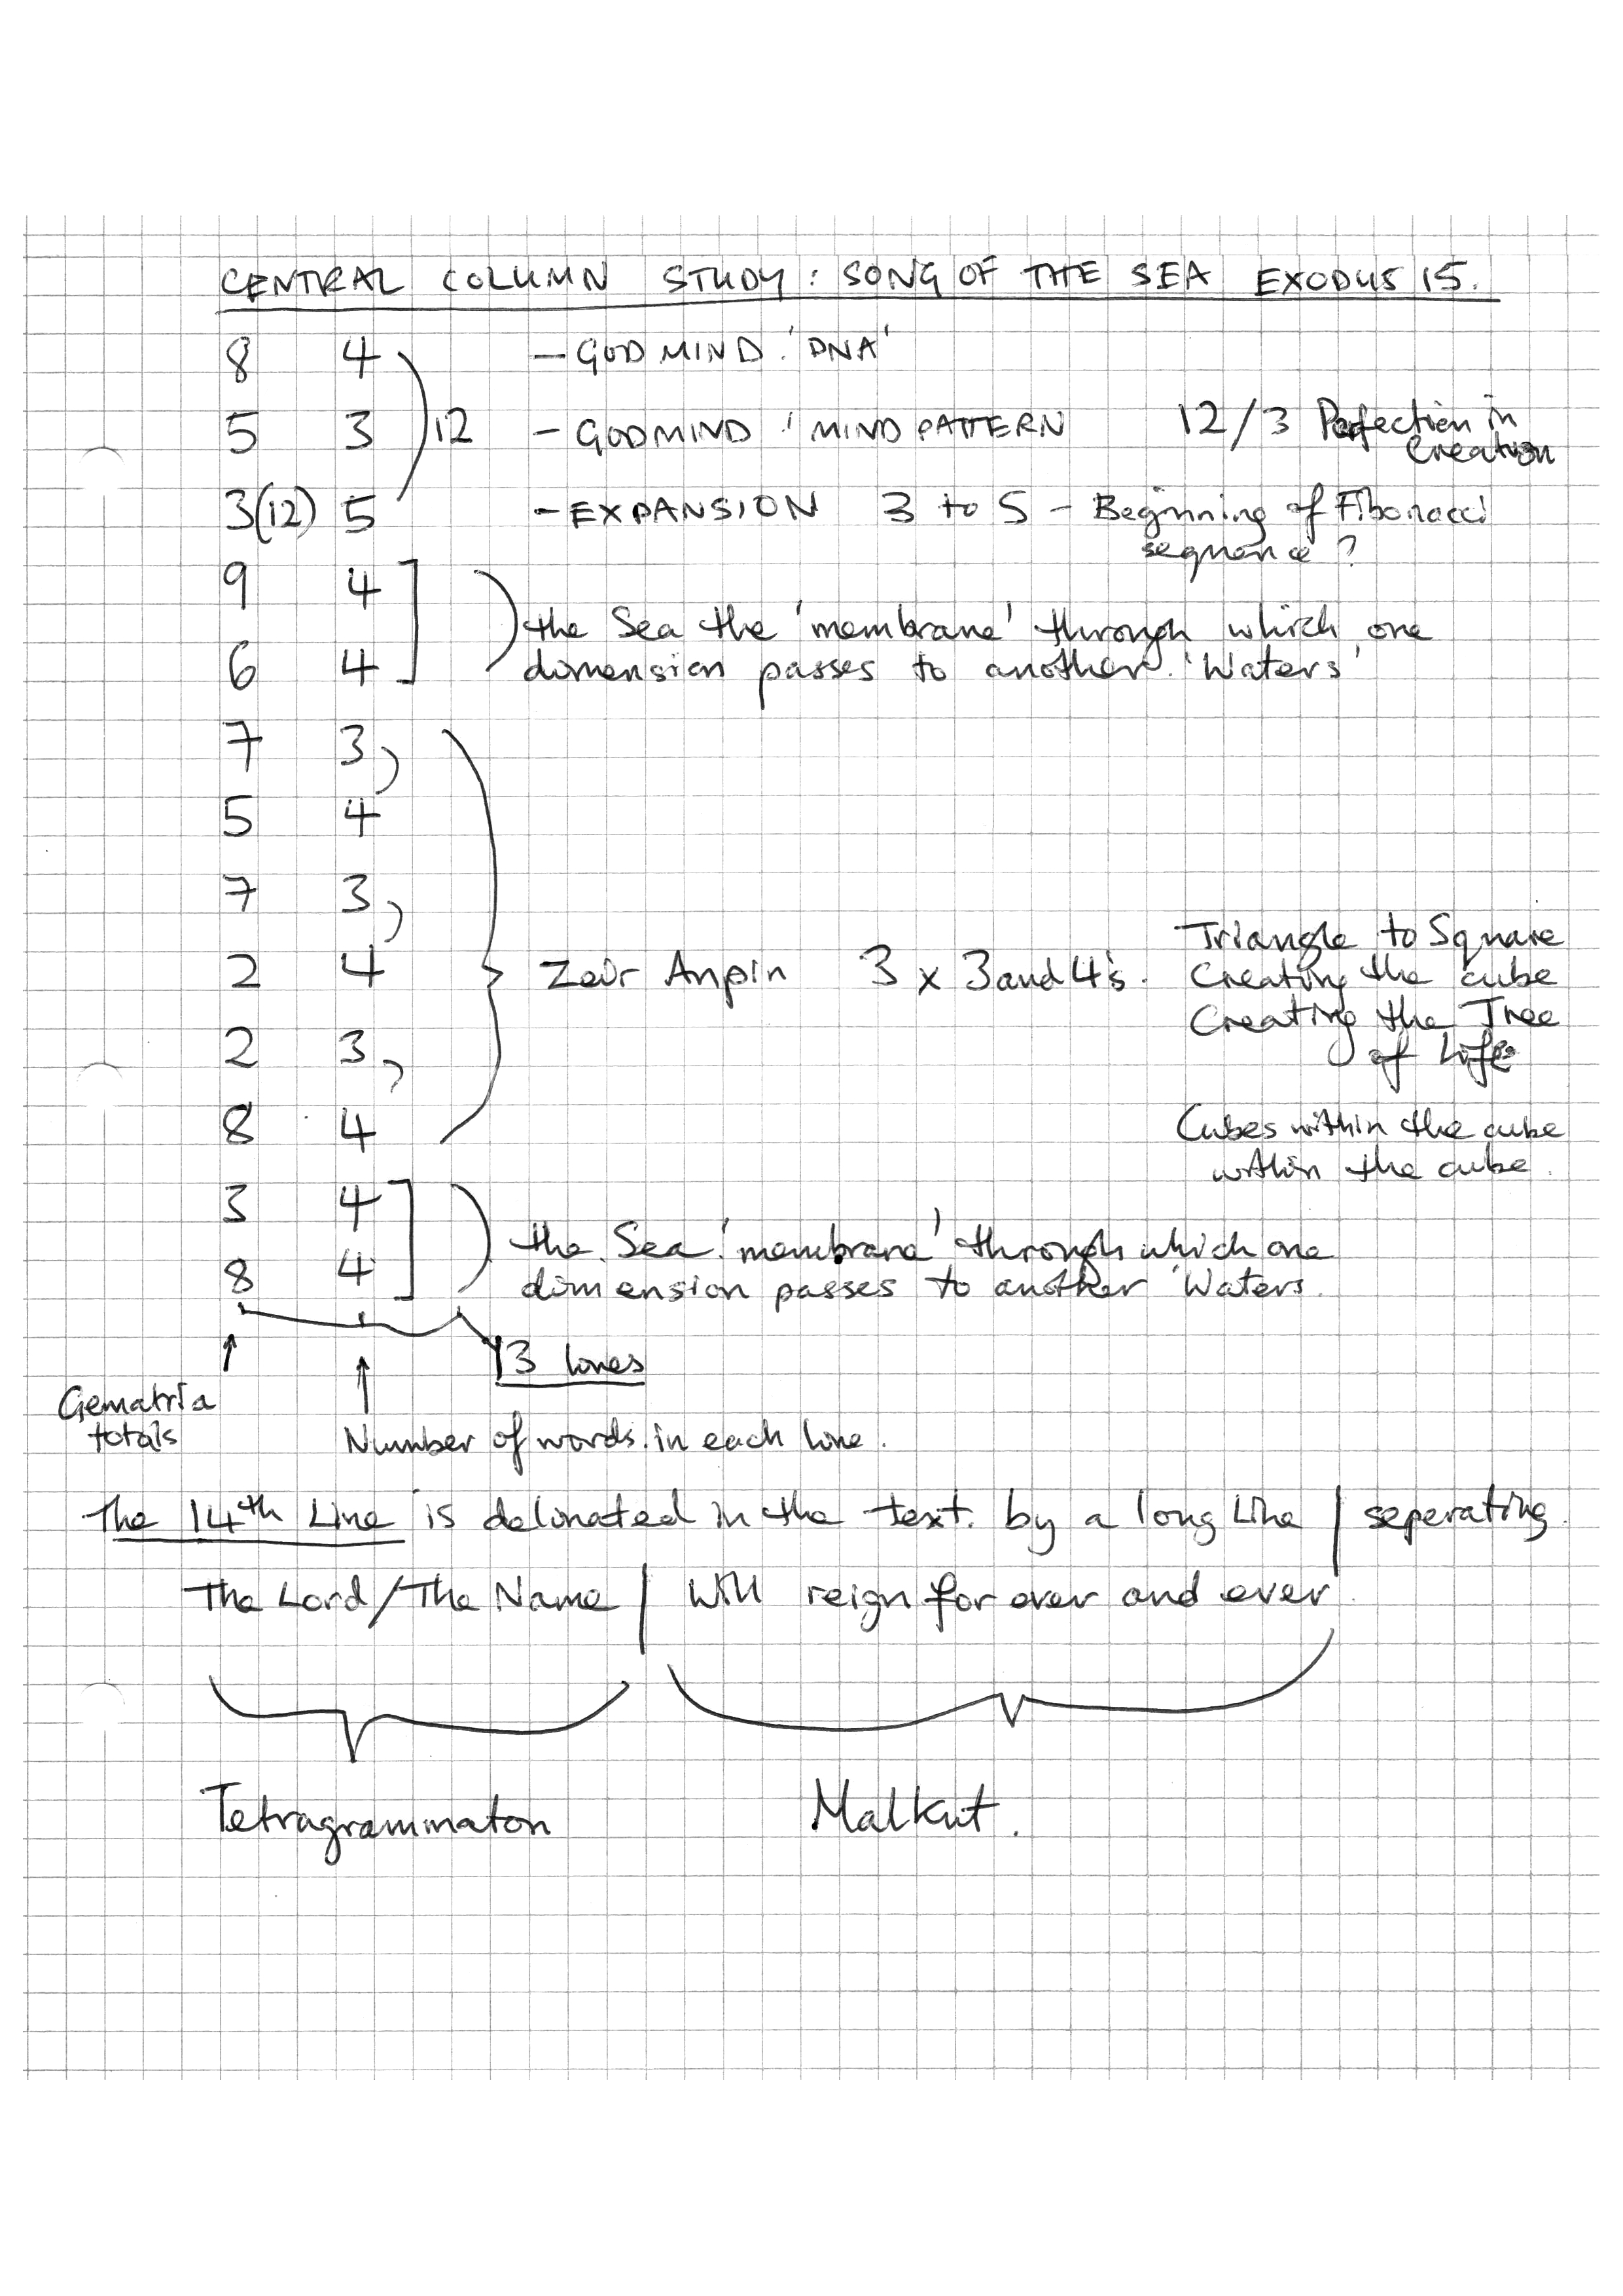 CENTRAL COLUMN STUDY: SONG OF THE SEA EXODUS 15.
8 4 - GOD MIND 'DNA'
5 3 12 - GODMIND 'MIND PATTERN 12/3 Perfection in
Creation
3(12) 5 - EXPANSION 3 to 5 - Beginning of Fibonacci
sequence?
9 4
the Sea the 'membrane' through which one
6 4 dimension passes to another. 'Waters'
7 3,
5 4
7 3,
Triangle to Square
2 4 Zeir Anpin 3 x 3 and 4's. Creating the cube
Creating the Tree
2 3, of Life
8 4 Cubes within the cube
within the cube.
3 4
the Sea 'membrane' through which one
8 4 dimension passes to another 'Waters.
13 lines
Gematria
totals
Number of words in each line.
The 14th Line is delinated in the text. by a long Line | seperating.
The Lord/The Name | Will reign for ever and ever.
Tetragrammaton Malkut.